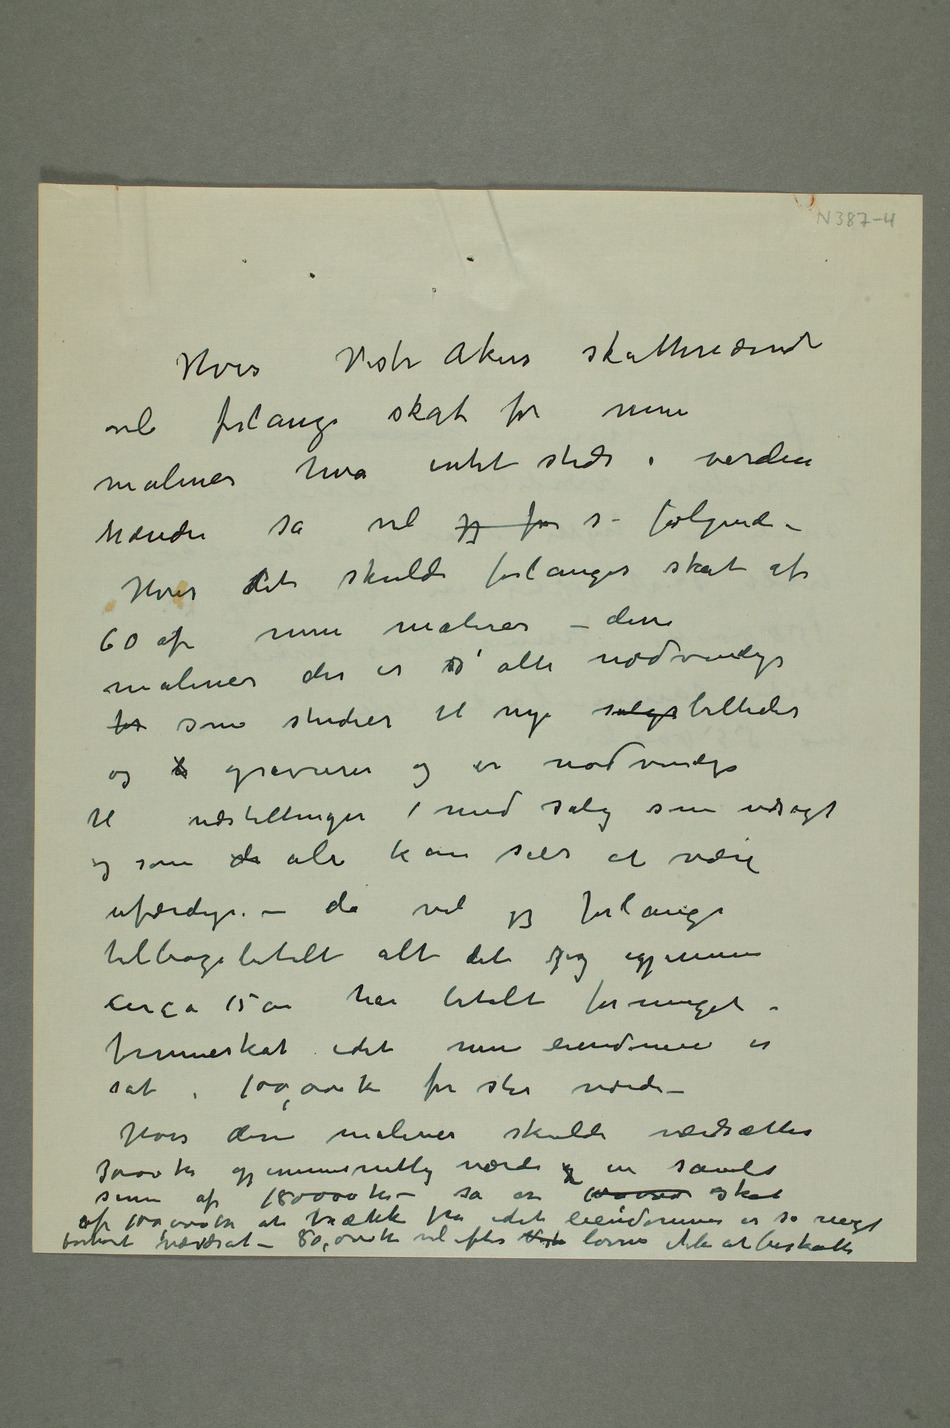 N 387-4
Hvis Vestr Akers skattvæsende
vil forlange skat for mine
malerier hva intet steds i verden
hænder så vil jeg for s- følgende –
Hvis det skulde forlanges skat af
60 af mine malerier – disse
malerier der er alle nødvendige
for som studier til nye salgsbilleder
og gravurer og er nødvendige
til udstillinger / med salg som udsagt
og som de alle kan sees at være
ufærdige. – da vil jeg forlange
tilbagebetalt alt det jeg igjennem
circa 15 år har betalt formeget i
formueskat idet min eiendomme er
sat i 100,000 kr for stor værdi –
Hvis disse malerier skulde værdsættes
3000 kr gjennemsnitlig værdi og en samlet
sum af 180000 kr – så er skat
af 100,000 kr at trække fra idet eiendommen er så meget
forhøit værdsat – 80,000 kr vil efter loven ikke at beskattes